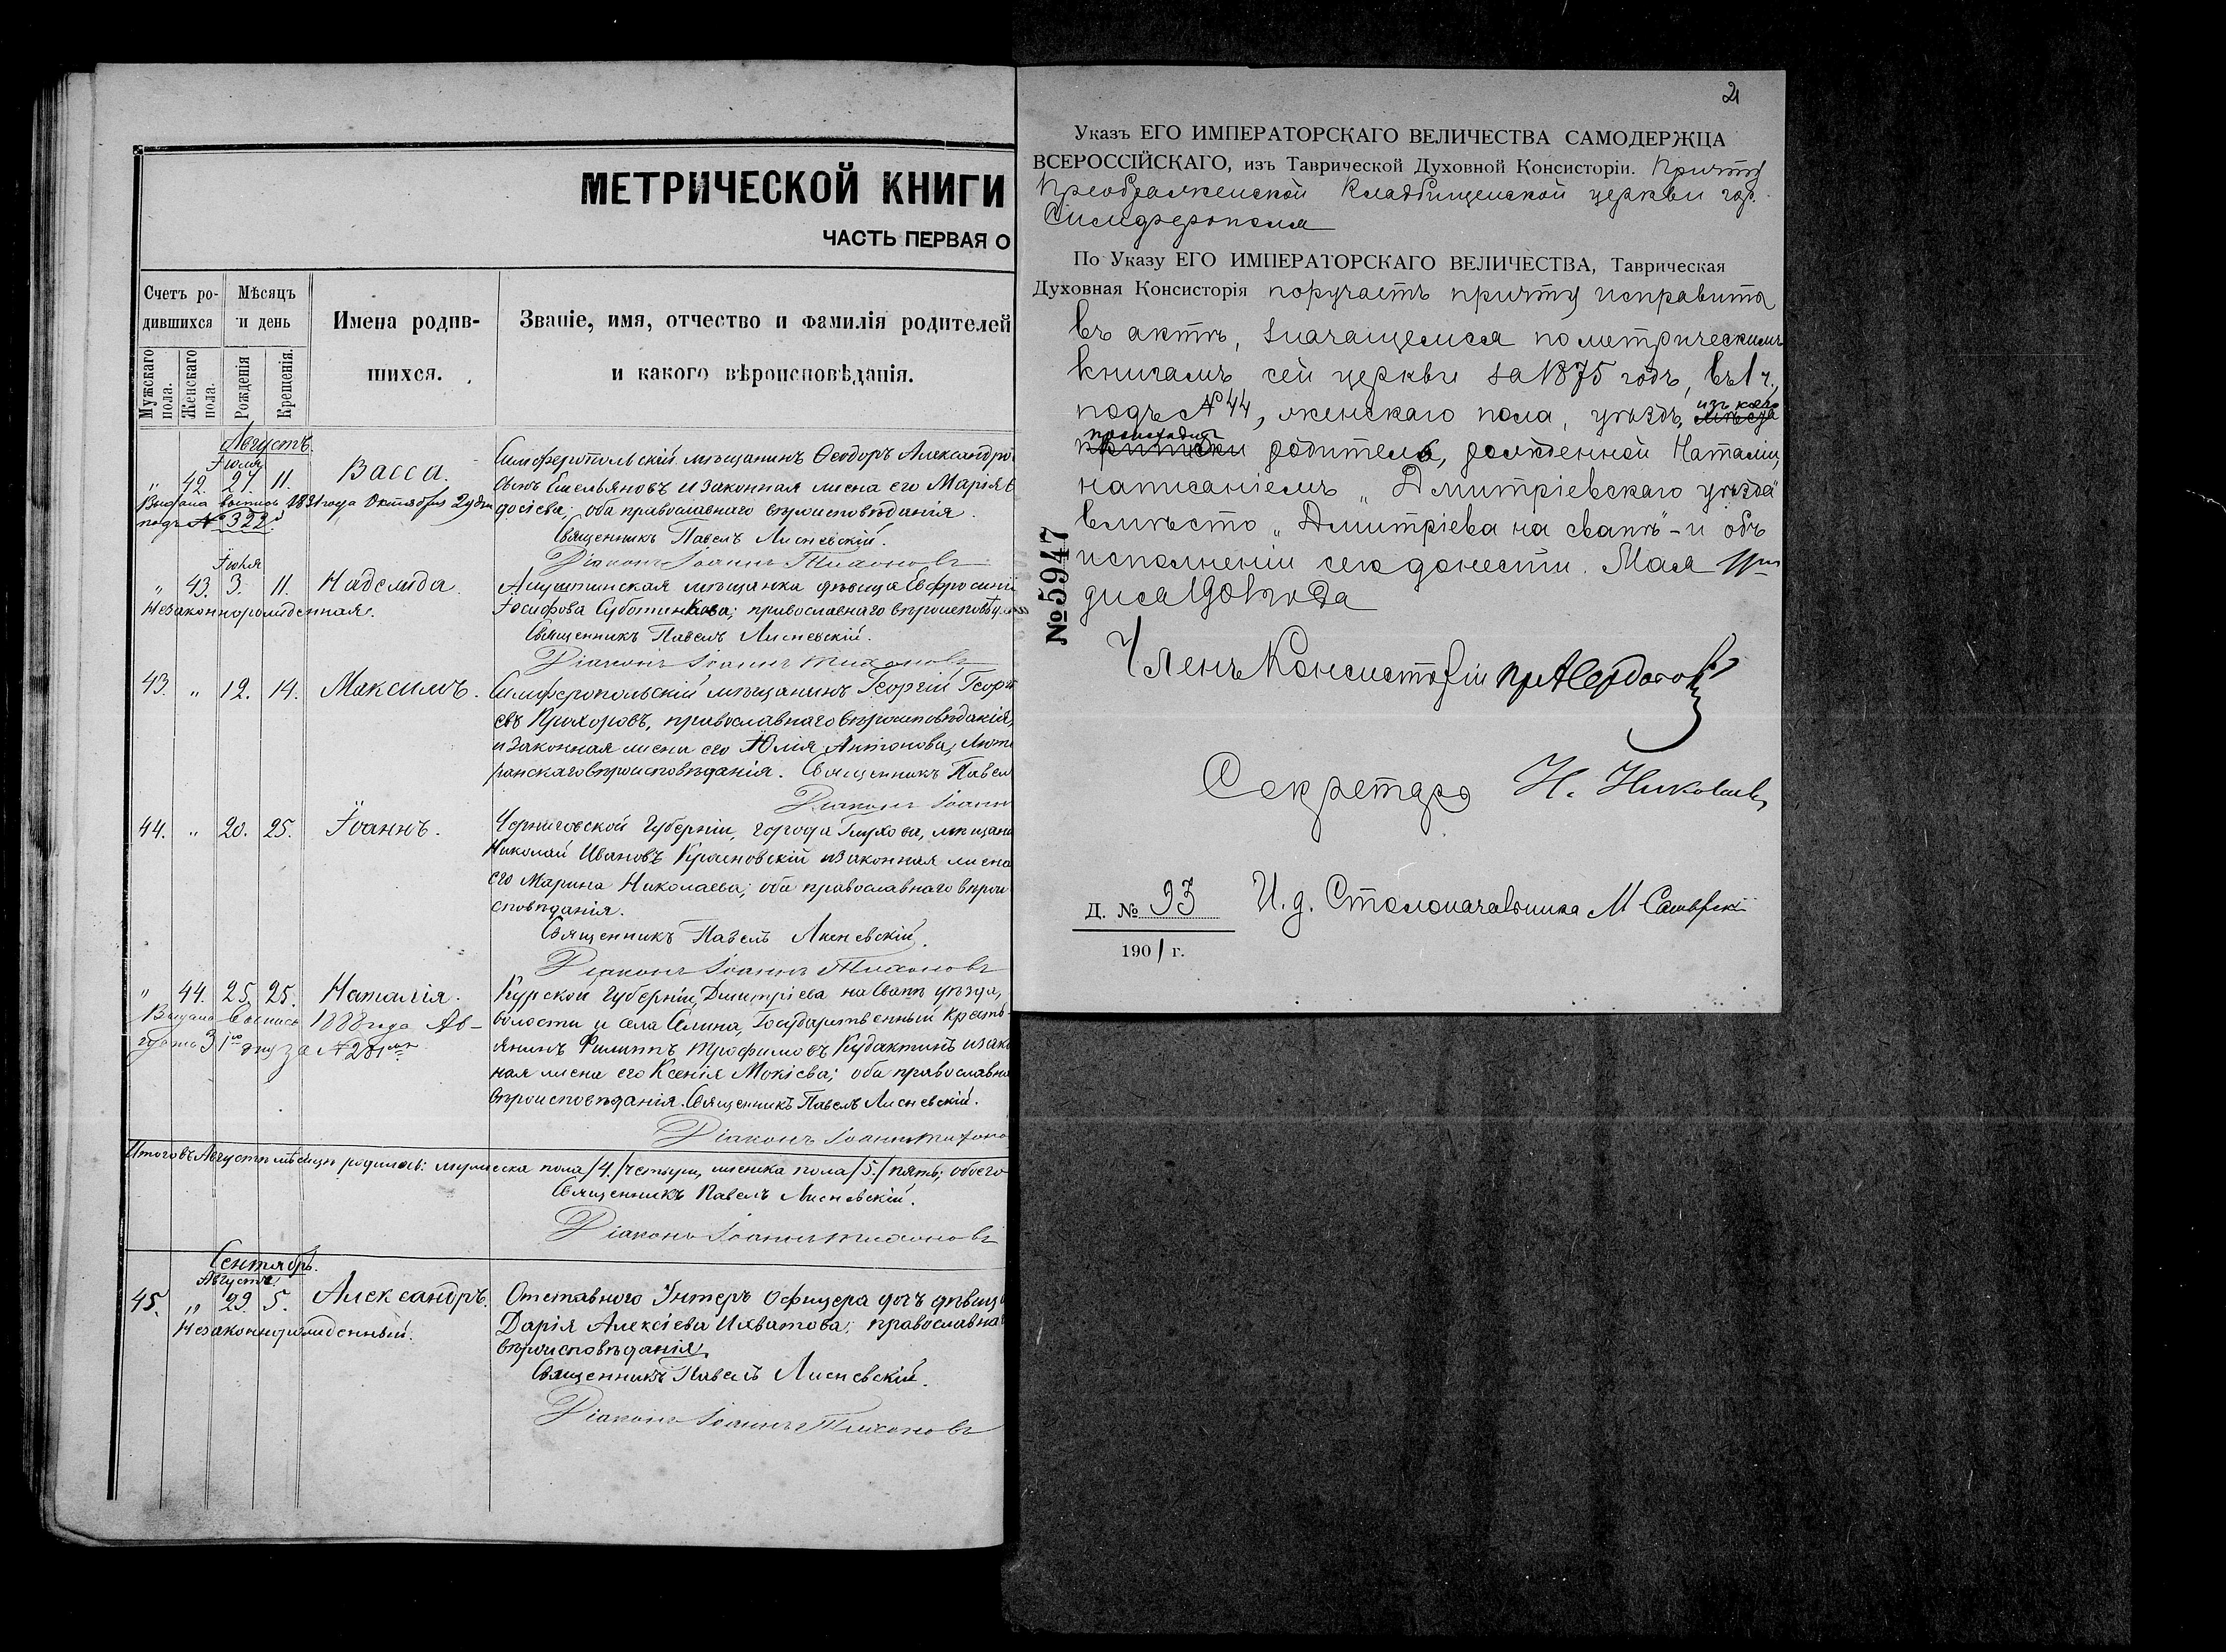 МЕТРИЧЕСКОЙ КНИГИ
ЧАСТЬ ПЕРВАЯ О
Счетъ ро-
дившихся
Мѣсяцъ
и день
Имена родив-
шихся.
Званіе, имя, отчество и фамилія родителей
и какого вѣроисповѣданія.
Мужскаго пола.
Женскаго пола.
Рожденія
Крещенія.
Августъ.
Іюля
" 42. 27. 11. Васса.
Выдана выпись года Октября 2 дня
подъ № 322.
Симферопольскій мѣщанинъ Ѳеодоръ Александро
сынъ Емельяновъ и законная жена его Марія Ѳ
досіева; оба православнаго вѣроисповѣданія.
Священникъ Павелъ Лисневскій.
Діаконъ Іоаннъ Тихоновъ
" 43. 3. 11. Надежда.
Незаконнорожденная.
мѣщанка дѣвица Евфросинія
Іосифова православнаго
Священникъ Павелъ Лисневскій.
Діаконъ Іоаннъ Тихоновъ
43. " 12. 14. Максимъ.
Симферопольскій мѣщанинъ Георгій Георгі
евъ Прохоровъ, православнаго вѣроисповѣданія,
и законная жена его Юлія Антонова, Люте
ранскаго вѣроисповѣданія. Священникъ Павелъ
Діаконъ Іоаннъ
44. " 20. 25. Іоаннъ.
Черниговской Губерніи, города Глухова, мѣщани
Николай Ивановъ Красновскій и законная жена
его Марина Николаева; оба православнаго вѣрои
сповѣданія.
Священникъ Павелъ Лисневскій.
Діаконъ Іоаннъ Тихоновъ
" 44. 25. 25. Наталія.
Выдана выпись 1888 года Ав-
густа 31го дня за №
Курской Губерніи, Дмитріева на Свапѣ уѣзда,
волости и села Селина, Государственный кресть-
янинъ Филиппъ Трофимовъ Кудактинъ и зако
ная жена его Ксенія Мокіева; оба православна
вѣроисповѣданія. Священникъ Павелъ Лисневскій.
Діаконъ Іоаннъ Тихоно
Итого въ Августѣ мѣсяцѣ родилось: мужеска пола /4./ четыри, женска пола /5./ пять; обоего
Священникъ Павелъ Лисневскій.
Діаконъ Іоаннъ Тихоновъ
Сентябрь.
Августа
45. " 29. 5. Александръ.
Незаконнорожденный.
Отставного Унтеръ Офицера дочь дѣвица
Дарія Алексіева Ихватова; православна
вѣроисповѣданія.
Священникъ Павелъ Лисневскій.
Діаконъ Іоаннъ Тихоновъ
2
Указъ ЕГО ИМПЕРАТОРСКАГО ВЕЛИЧЕСТВА САМОДЕРЖЦА
ВСЕРОССІЙСКАГО, изъ Таврической Духовной Консисторіи. Причту
Преображенской Кладбищенской церкви гор.
Симферополя
По Указу ЕГО ИМПЕРАТОРСКАГО ВЕЛИЧЕСТВА, Таврическая
Духовная Консисторія поручаетъ причту исправить
въ актѣ, значащемся по метрическимъ
книгамъ сей церкви за 1875 годъ, въ 1 ч.,
подъ № 44, женскаго пола, уѣздъ, изъ коего
происходитъ
родитель, рожденной Наталіи,
написаніемъ „Дмитріевскаго уѣзда"
вмѣсто „Дмитріева на свапѣ" - и объ
исполненіи сего донести. Мая 11го
дня 1901 года
№ 5947
Членъ Консисторіи
Секретарь Н.
Д. № 93 И. д. Столоначальника М
1901 г.